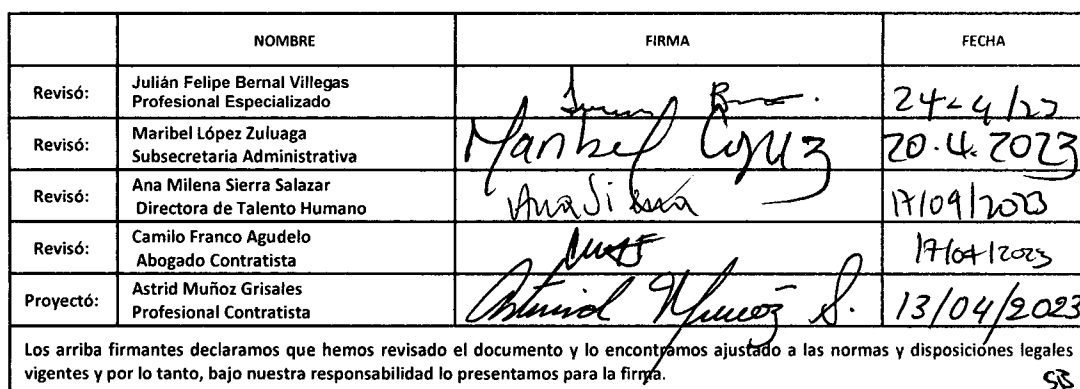 NOMBRE FIRMA FECHA
Revisó: Julián Felipe Bernal Villegas
Profesional Especializado
24-4/23
Revisó: Maribel López Zuluaga
Subsecretaria Administrativa
Maribel López 20.4.2023
Revisó: Ana Milena Sierra Salazar
Directora de Talento Humano
Ana Sierra 17/04/2023
Revisó: Camilo Franco Agudelo
Abogado Contratista
17/04/2023
Proyectó: Astrid Muñoz Grisales
Profesional Contratista
Astrid Muñoz S. 13/04/2023
Los arriba firmantes declaramos que hemos revisado el documento y lo encontramos ajustado a las normas y disposiciones legales
vigentes y por lo tanto, bajo nuestra responsabilidad lo presentamos para la firma.